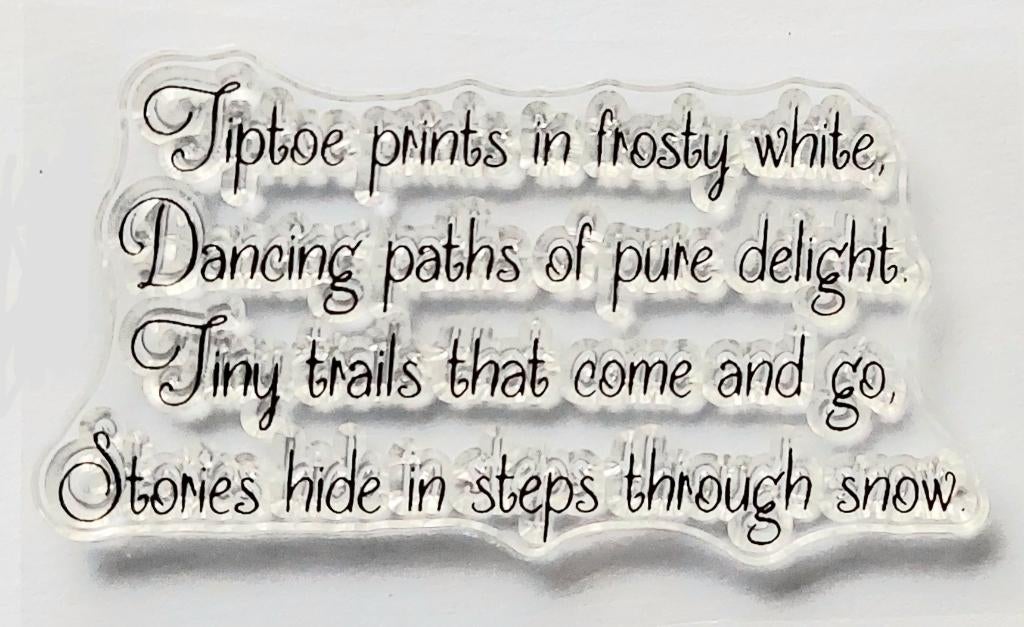 Tiptoe prints in frosty white,
Dancing paths of pure delight.
Tiny trails that come and go,
Stories hide in steps through snow.